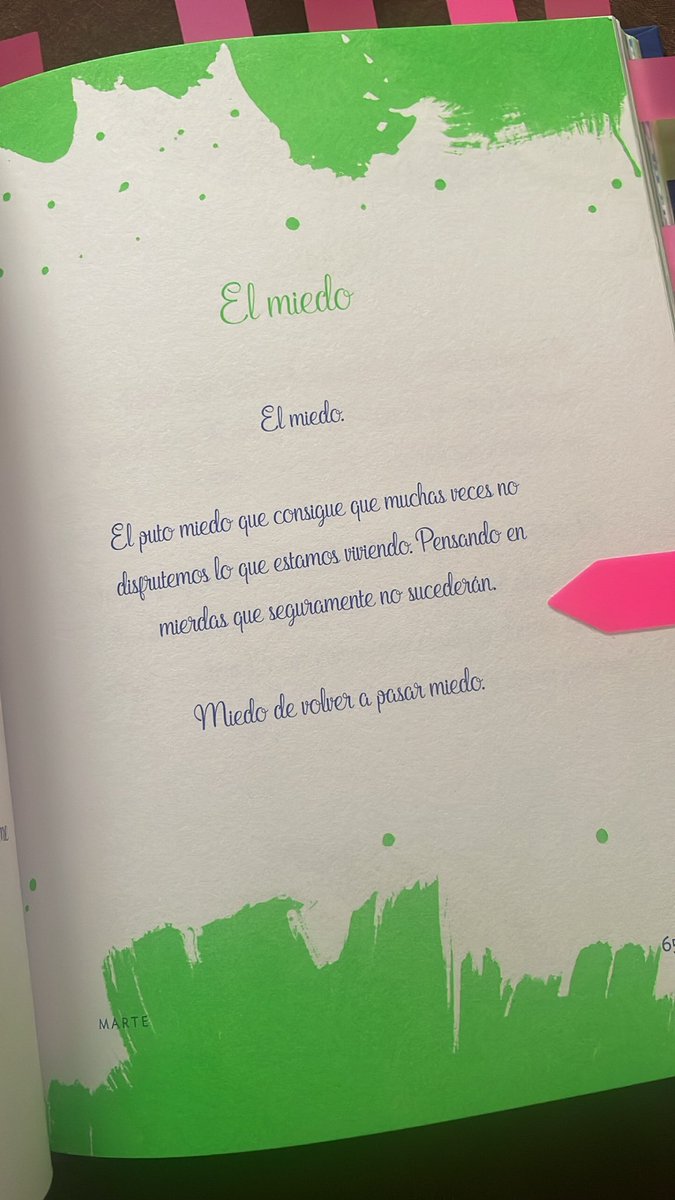 El miedo
El miedo.
El puto miedo que consigue que muchas veces no
disfrutemos lo que estamos viviendo. Pensando en
mierdas que seguramente no sucederán.
Miedo de volver a pasar miedo.
MARTE